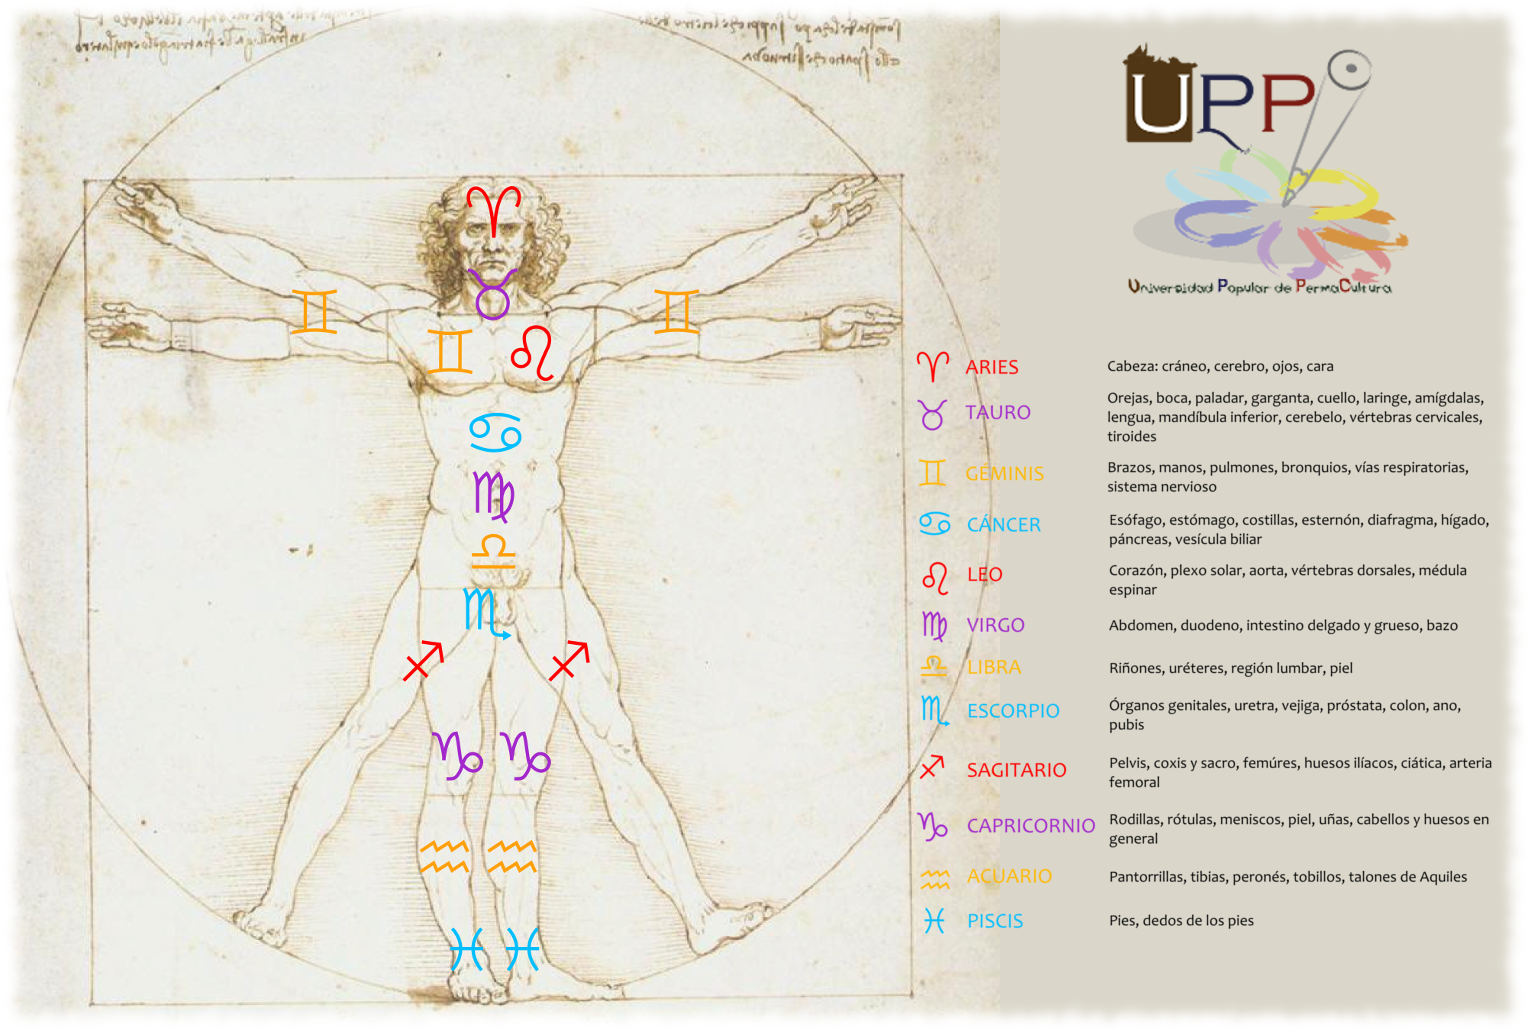 UPP
Universidad Popular de PermaCultura
ARIES
Cabeza: cráneo, cerebro, ojos, cara
TAURO
Orejas, boca, paladar, garganta, cuello, laringe, amígdalas,
lengua, mandíbula inferior, cerebelo, vértebras cervicales,
tiroides
GÉMINIS
Brazos, manos, pulmones, bronquios, vías respiratorias,
sistema nervioso
CÁNCER
Esófago, estómago, costillas, esternón, diafragma, hígado,
páncreas, vesícula biliar
LEO
Corazón, plexo solar, aorta, vértebras dorsales, médula
espinar
VIRGO
Abdomen, duodeno, intestino delgado y grueso, bazo
LIBRA
Riñones, uréteres, región lumbar, piel
ESCORPIO
Órganos genitales, uretra, vejiga, próstata, colon, ano,
pubis
SAGITARIO
Pelvis, coxis y sacro, femúres, huesos ilíacos, ciática, arteria
femoral
CAPRICORNIO
Rodillas, rótulas, meniscos, piel, uñas, cabellos y huesos en
general
ACUARIO
Pantorrillas, tibias, peronés, tobillos, talones de Aquiles
PISCIS
Pies, dedos de los pies